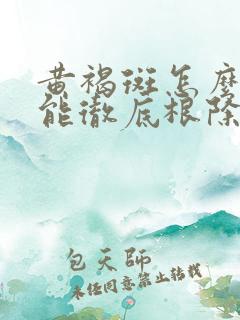 黄褐斑怎麽
能徹底根除
包天師
未经同意禁止转载